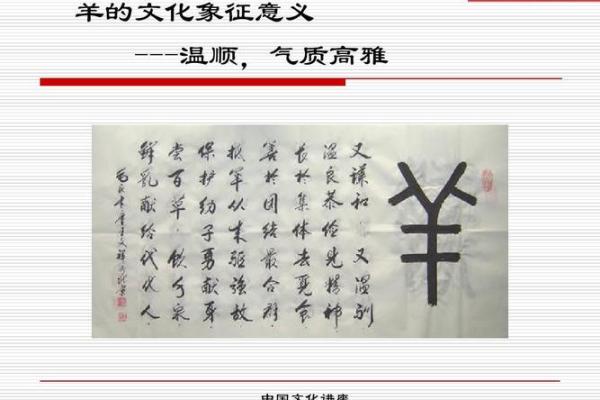 羊的文化象征意义
---温顺，气质高雅
羊
又谦和 又温驯
温良恭俭见精神
长於集体去觅食
善於团结最合群
从来驱强敌
保护幼子勇献身
尝百草·饮泉
鲜乳献给代代人
中国文化讲座